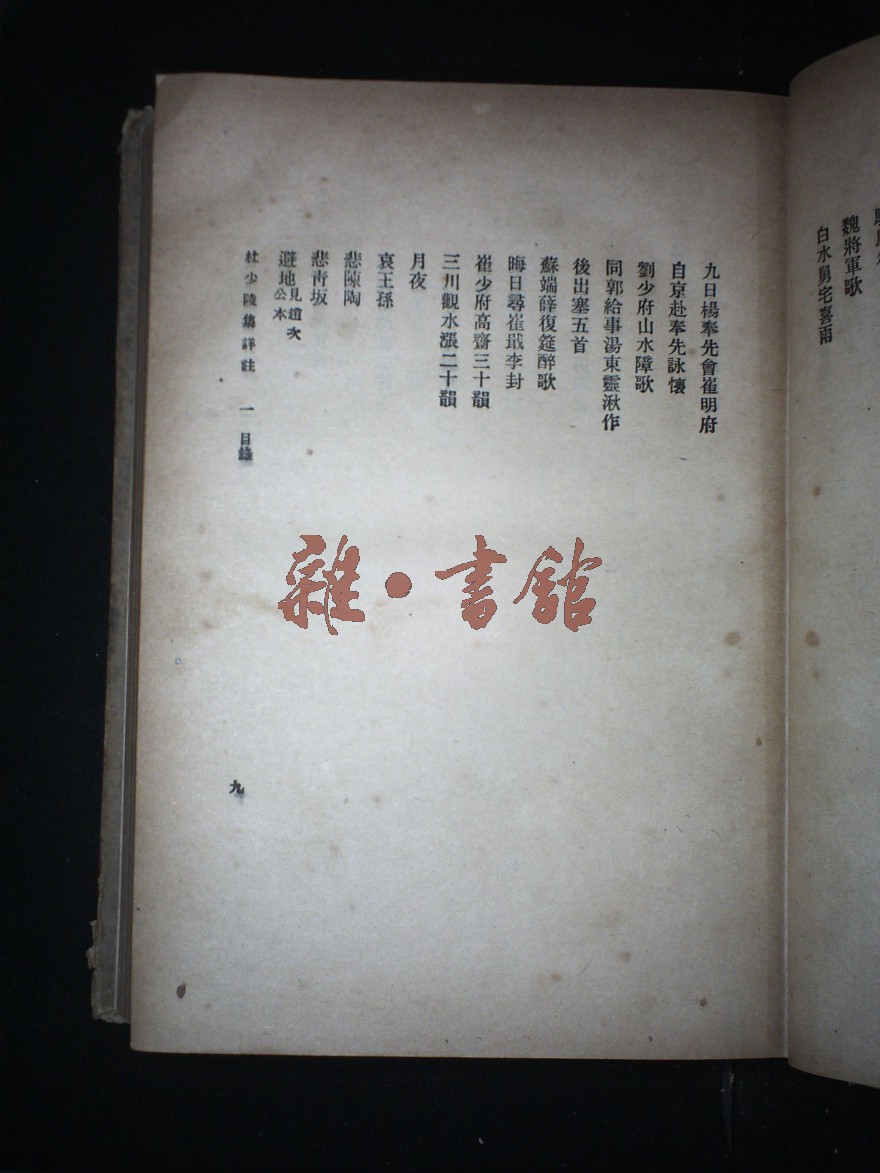 白水舅宅喜雨
魏將軍歌
九日楊奉先會崔明府
自京赴奉先詠懷
劉少府山水障歌
同郭給事湯東靈湫作
後出塞五首
蘇端薛復筵醉歌
晦日尋崔戢李封
崔少府高齋三十韻
三川觀水漲二十韻
月夜
哀王孫
悲陳陶
悲靑坂
避地見趙次公本
杜少陵集詳註 一 目錄
九
雜·書館